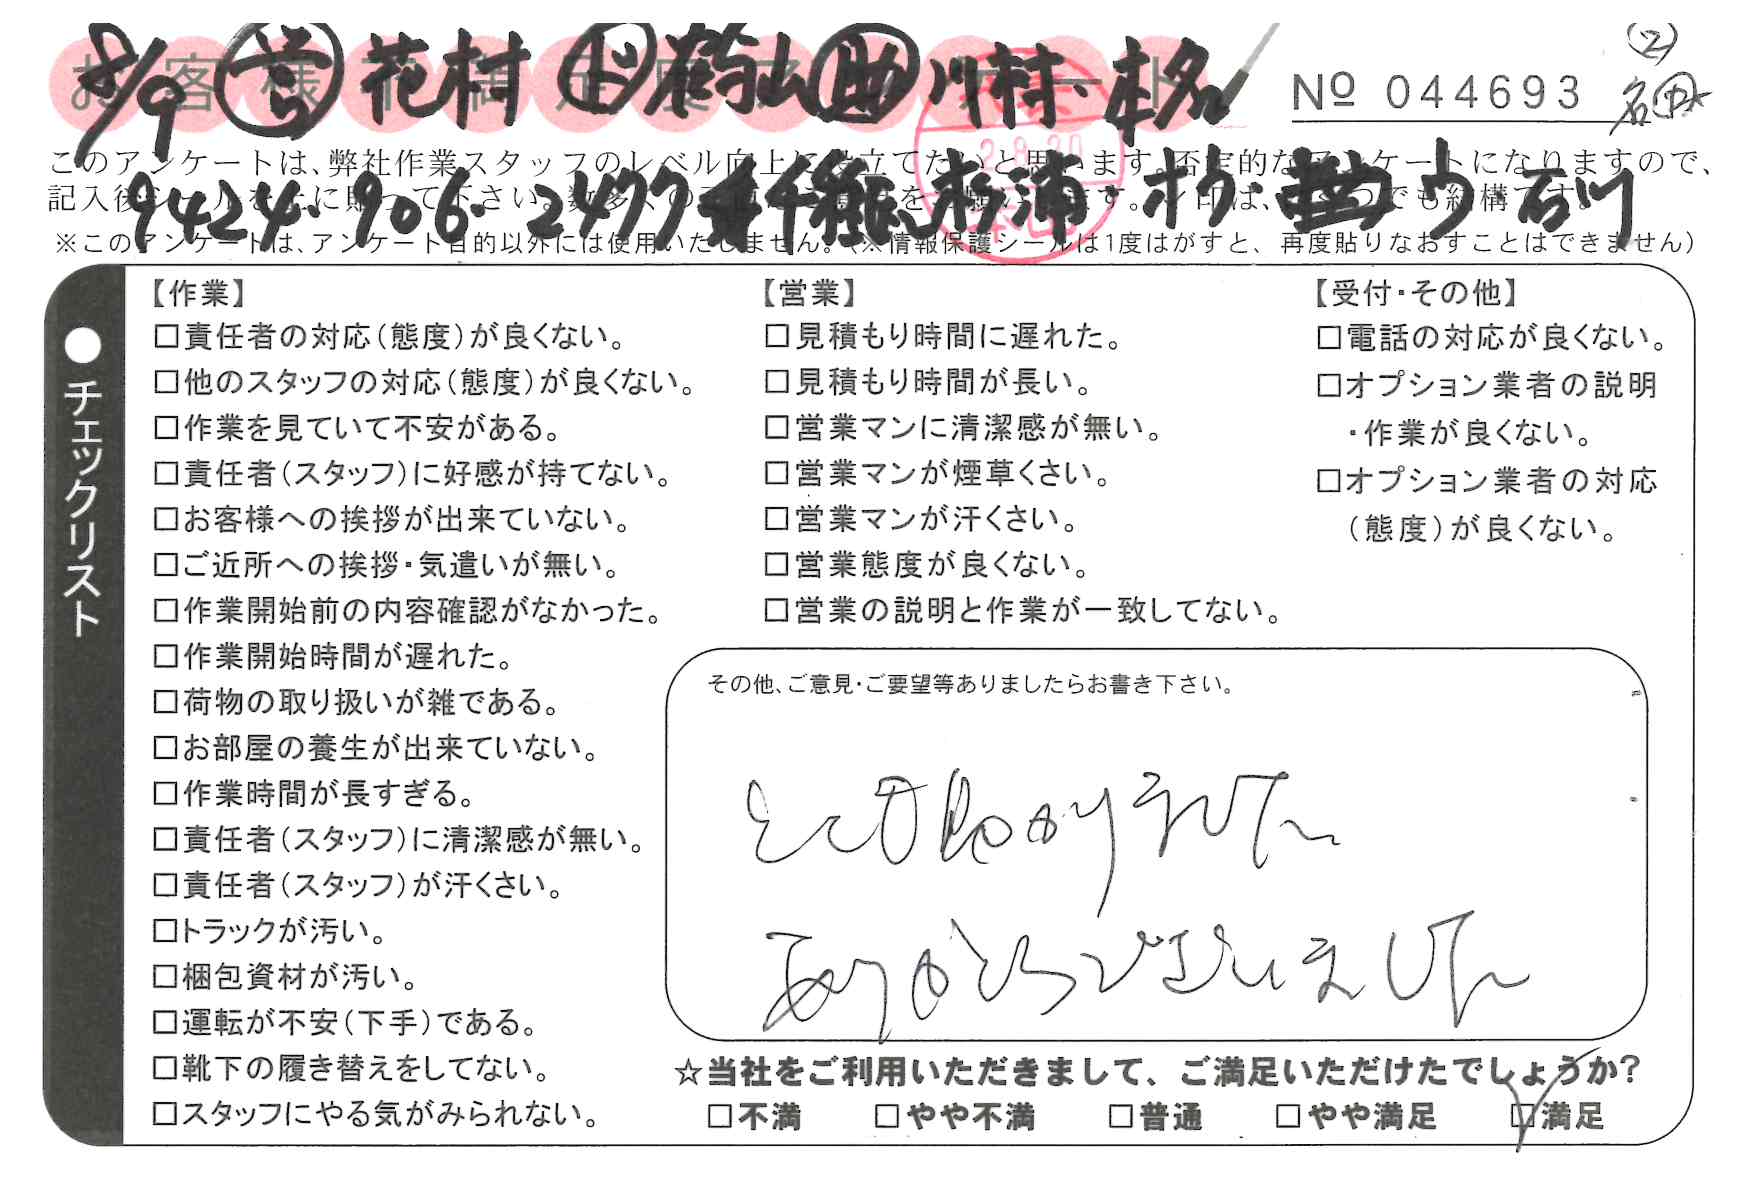 お客様満足度アンケート
8/9 営 花村 ド 鶴山 助 川村・本名
№ 044693
②
このアンケートは、弊社作業スタッフのレベル向上に役立てたいと思います。否定的なアンケートになりますので、
9424・906・2477 千種 杉浦 オク・ウ 石川
※このアンケートは、アンケート目的以外には使用いたしません。(※情報保護シールは1度はがすと、再度貼りなおすことはできません)
●チェックリスト
【作業】
□責任者の対応(態度)が良くない。
□他のスタッフの対応(態度)が良くない。
□作業を見ていて不安がある。
□責任者(スタッフ)に好感が持てない。
□お客様への挨拶が出来ていない。
□ご近所への挨拶・気遣いが無い。
□作業開始前の内容確認がなかった。
□作業開始時間が遅れた。
□荷物の取り扱いが雑である。
□お部屋の養生が出来ていない。
□作業時間が長すぎる。
□責任者(スタッフ)に清潔感が無い。
□責任者(スタッフ)が汗くさい。
□トラックが汚い。
□梱包資材が汚い。
□運転が不安(下手)である。
□靴下の履き替えをしてない。
□スタッフにやる気がみられない。
【営業】
□見積もり時間に遅れた。
□見積もり時間が長い。
□営業マンに清潔感が無い。
□営業マンが煙草くさい。
□営業マンが汗くさい。
□営業態度が良くない。
□営業の説明と作業が一致してない。
【受付・その他】
□電話の対応が良くない。
□オプション業者の説明
・作業が良くない。
□オプション業者の対応
(態度)が良くない。
その他、ご意見・ご要望等ありましたらお書き下さい。
とても助かりました
ありがとうございました
☆当社をご利用いただきまして、ご満足いただけたでしょうか?
□不満 □やや不満 □普通 □やや満足 □満足